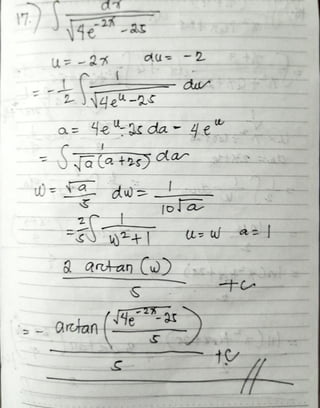 17.) ∫ dx / √(4e^(-2x) - 25)
u = -2x du = -2
= -1/2 ∫ 1 / √(4e^u - 25) du
a = 4e^u - 25 da - 4e^u
= ∫ 1 / (√a (a+25)) da
w = √a / 5 dw = 1 / (10√a)
= 2/5 ∫ 1 / (w² + 1) u = w a = 1
2 arctan (w) / 5 + c
= - arctan (√(4e^(-2x) - 25) / 5) / 5 + c //